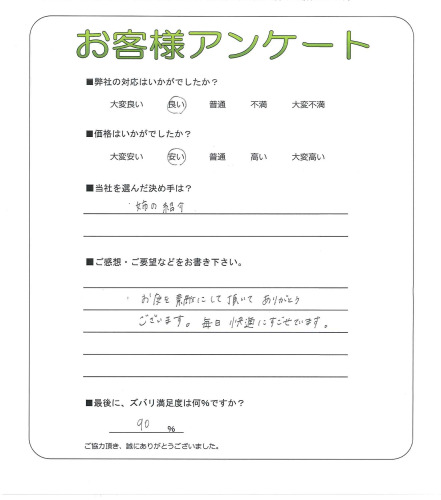 お客様アンケート
■弊社の対応はいかがでしたか？
大変良い 良い 普通 不満 大変不満
■価格はいかがでしたか？
大変安い 安い 普通 高い 大変高い
■当社を選んだ決め手は？
・姉の紹介
■ご感想・ご要望などをお書き下さい。
・お庭を素敵にして頂いて ありがとう
ございます。毎日快適にすごせています。
■最後に、ズバリ満足度は何%ですか？
90 %
ご協力頂き、誠にありがとうございました。